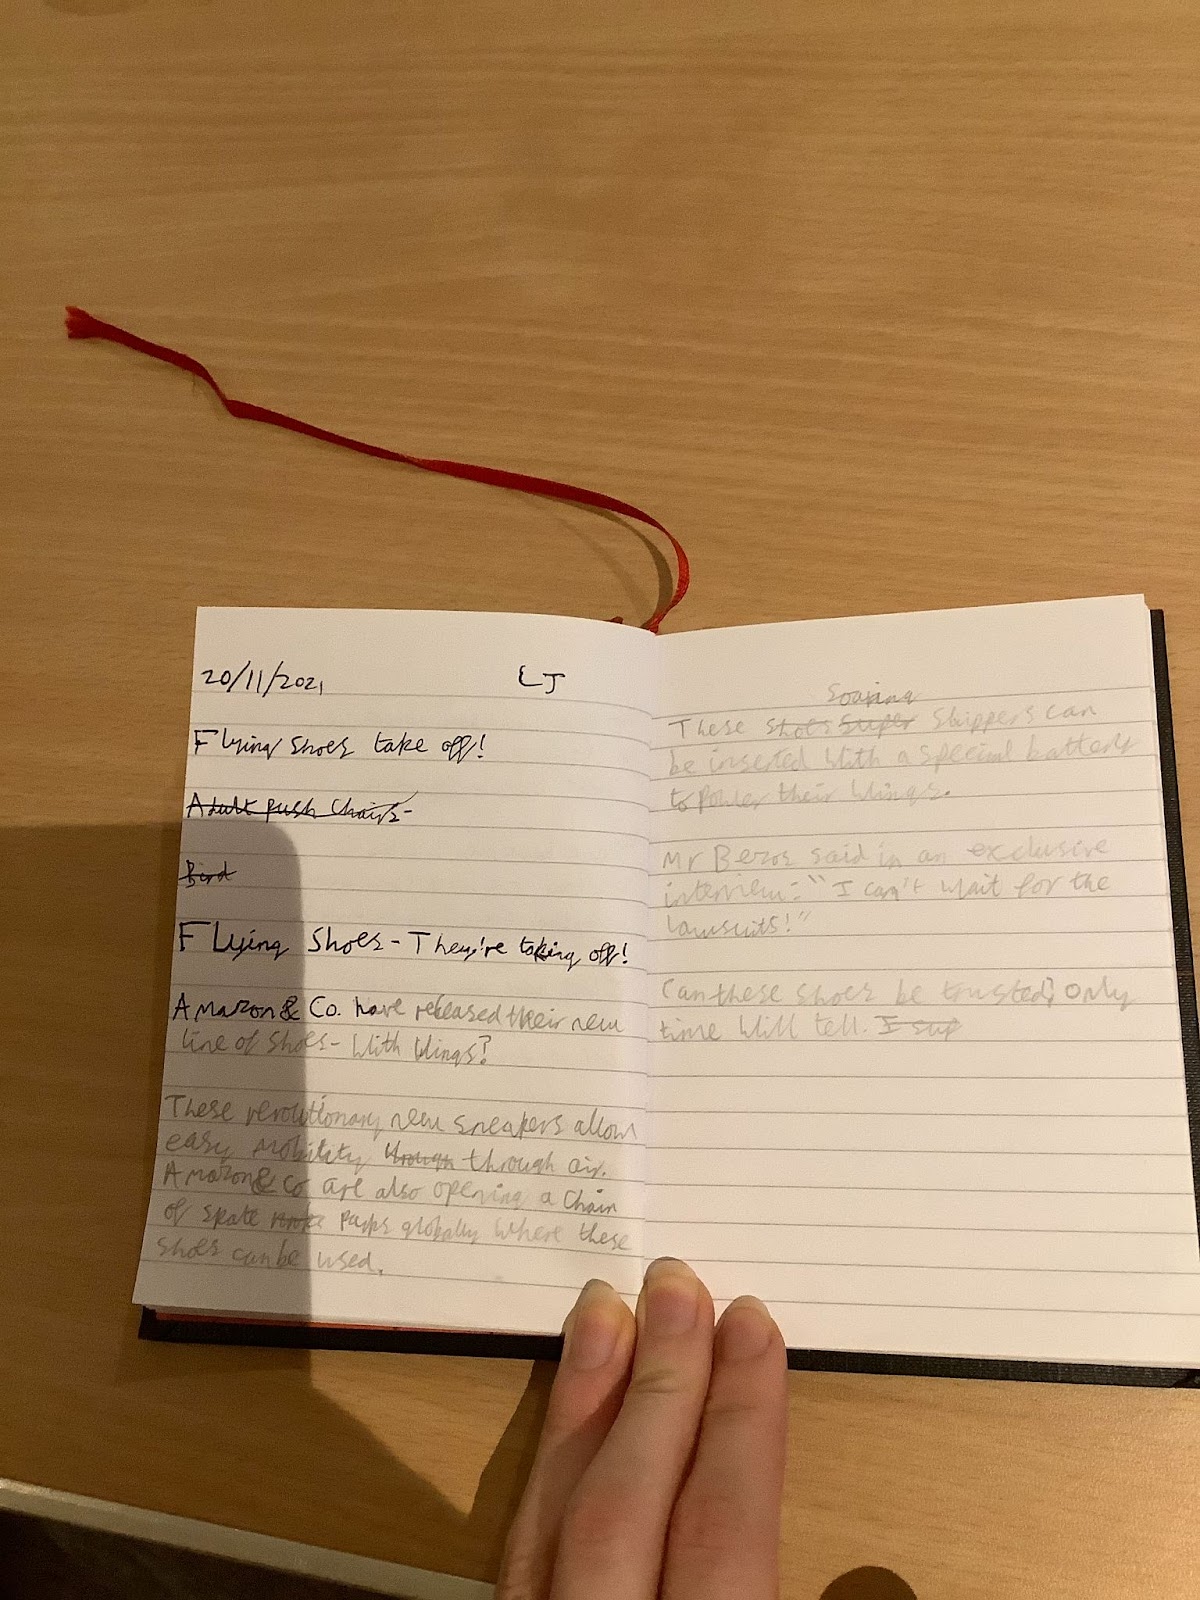 20/11/2021 LJ
Flying shoes take off!
Adult push chairs-
Bird
Flying Shoes - They're taking off!
Amazon & Co. have released their new
line of shoes - with wings?
These revolutionary new sneakers allow
easy mobility through through air.
Amazon & Co are also opening a chain
of skate parks globally where these
shoes can be used.
soaring
These shoes super skippers can
be inserted with a special battery
to power their wings.
Mr Bezos said in an exclusive
interview: "I can't wait for the
lawsuits!"
Can these shoes be trusted? Only
time will tell. I sup